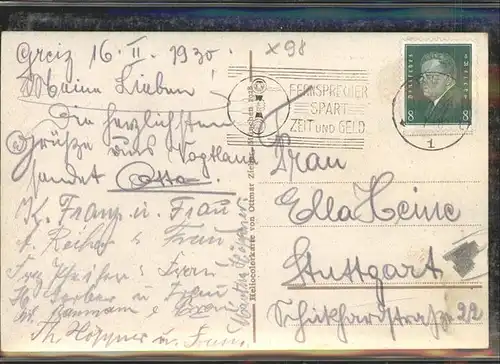 Greiz 16. II. 1930.
x 98
Meine Lieben!
Die herzlichsten
Grüße aus Vogtland
sendet Otto.
K. Franz u. Frau
A. Reiher u. Frau
Pfeifer u. Frau
Gerber u. Frau
Baumann u. Frau
Th. Höppner u. Frau
Heliocolorkarte von Ottmar Zieher, München
FERNSPRECHER
SPART
ZEIT UND GELD
Deutsches Reich
8 8
1
Frau
Ella Heine
Stuttgart
Schickhardtstraße 22